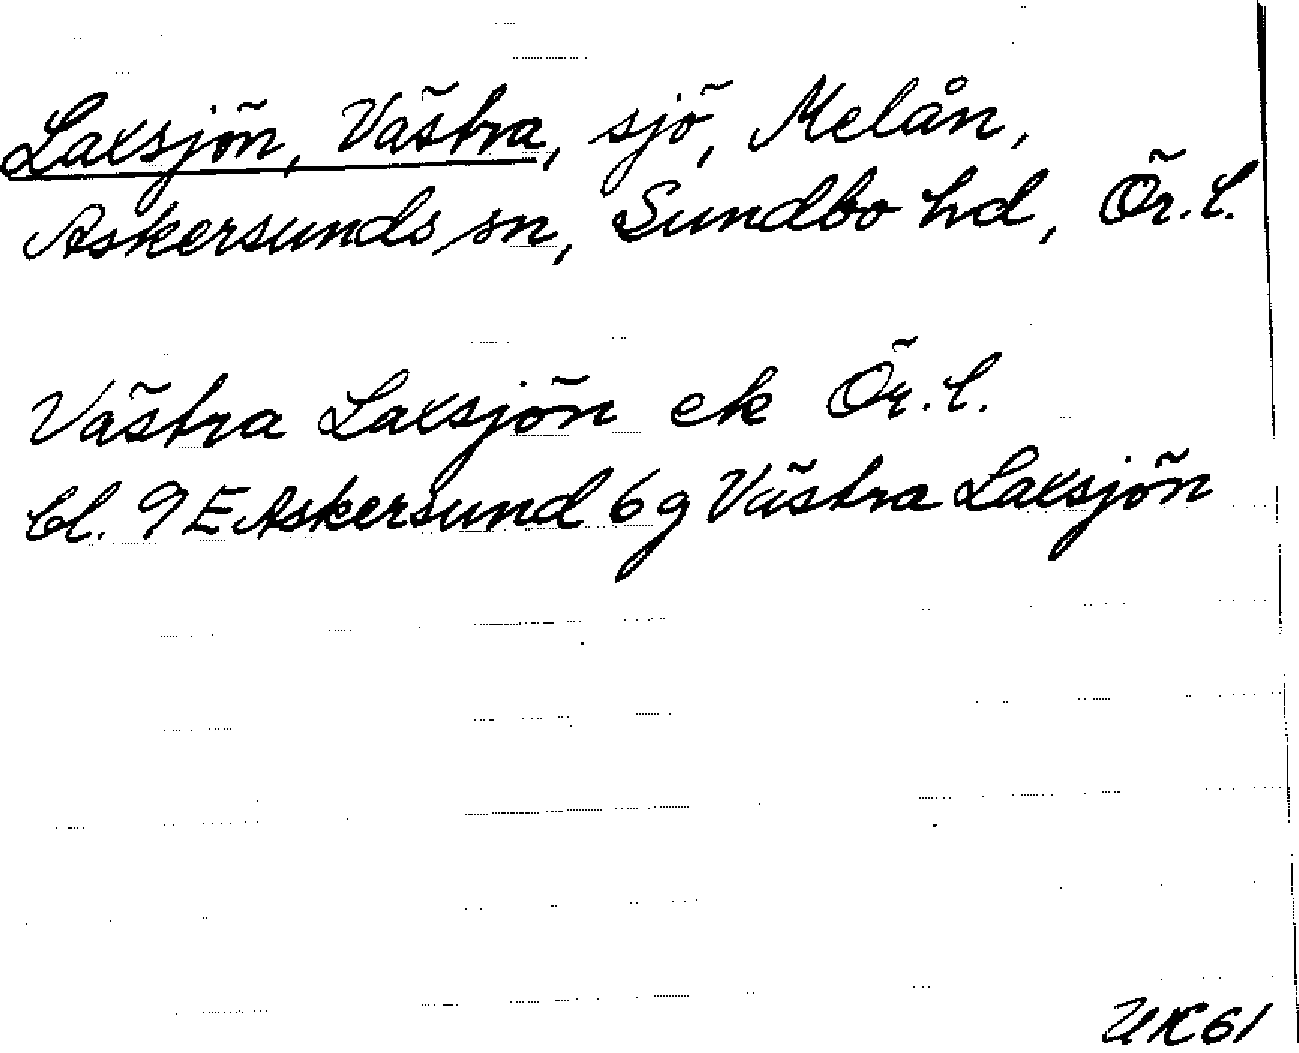 Laxsjön, Västra, sjö, Melån,
Askersunds sn, Sundbo hd, Ör. l.
Västra Laxsjön ek Ör. l.
bl. 9 E Askersund 6 g Västra Laxsjön
UK 61